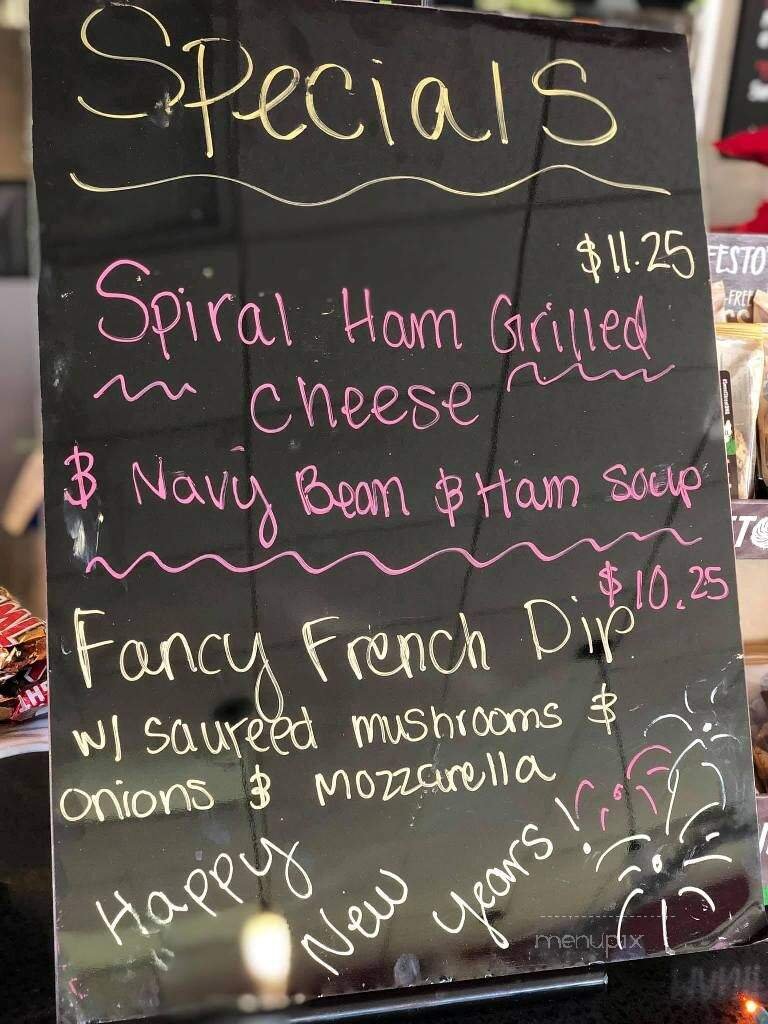 Specials
$11.25
Spiral Ham Grilled
cheese
$ Navy Bean $ Ham soup
$10.25
Fancy French Dip
w/ sauteed mushrooms $
onions $ mozzarella
Happy
New years!
menupix
FESTO
FREE